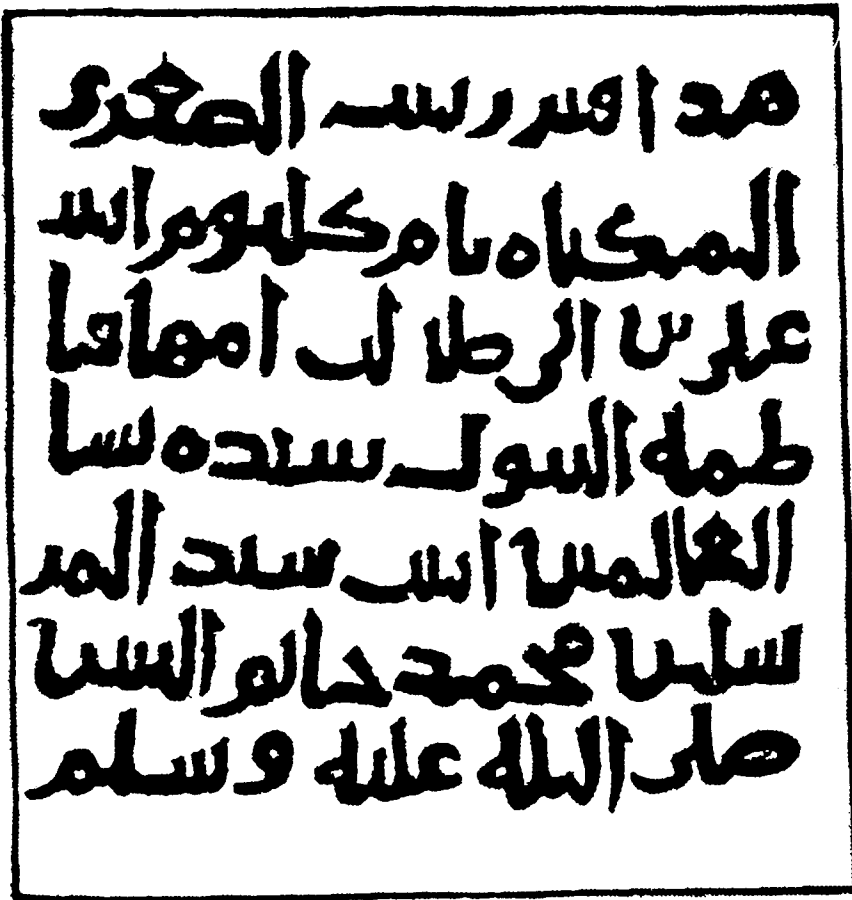 هذا قبر زينب الصغرى
المكناه بام كلثوم ابنت
علي بن ابي طالب امها فا
طمه البتول سيده نسا
العالمين ابنت سيد المر
سلين محمد خاتم النبين
صلى الله عليه وسلم